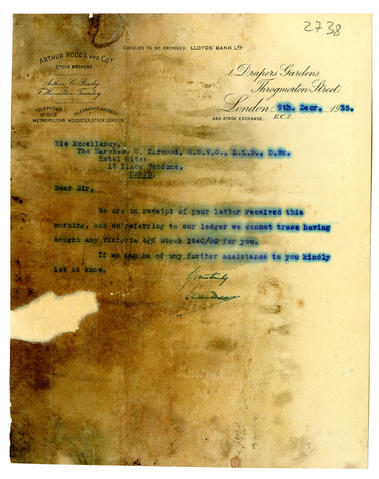 2738
CHEQUES TO BE CROSSED LLOYDS' BANK LTD
ARTHUR WOODS AND Co.
STOCK BROKERS.
Arthur C. Baily
F. Hamilton Townley
TELEPHONE
METROPOLITAN.
TELEGRAPHIC ADDRESS
WOODSTER, STOCK, LONDON.
1, Drapers Gardens,
Throgmorton Street,
London, 9th. Decr. 1935.
AND STOCK EXCHANGE. E.C.2.
His Excellency,
The Marchese G. Marconi, G.C.V.O., L.L.D., D.Sc.
Hotel Ritz,
15 Place Vendome,
Paris.
Dear Sir,
We are in receipt of your letter received this
morning, and on referring to our ledger we cannot trace having
bought any Victoria Stock 1940/60 for you.
If we can be of any further assistance to you kindly
let us know.